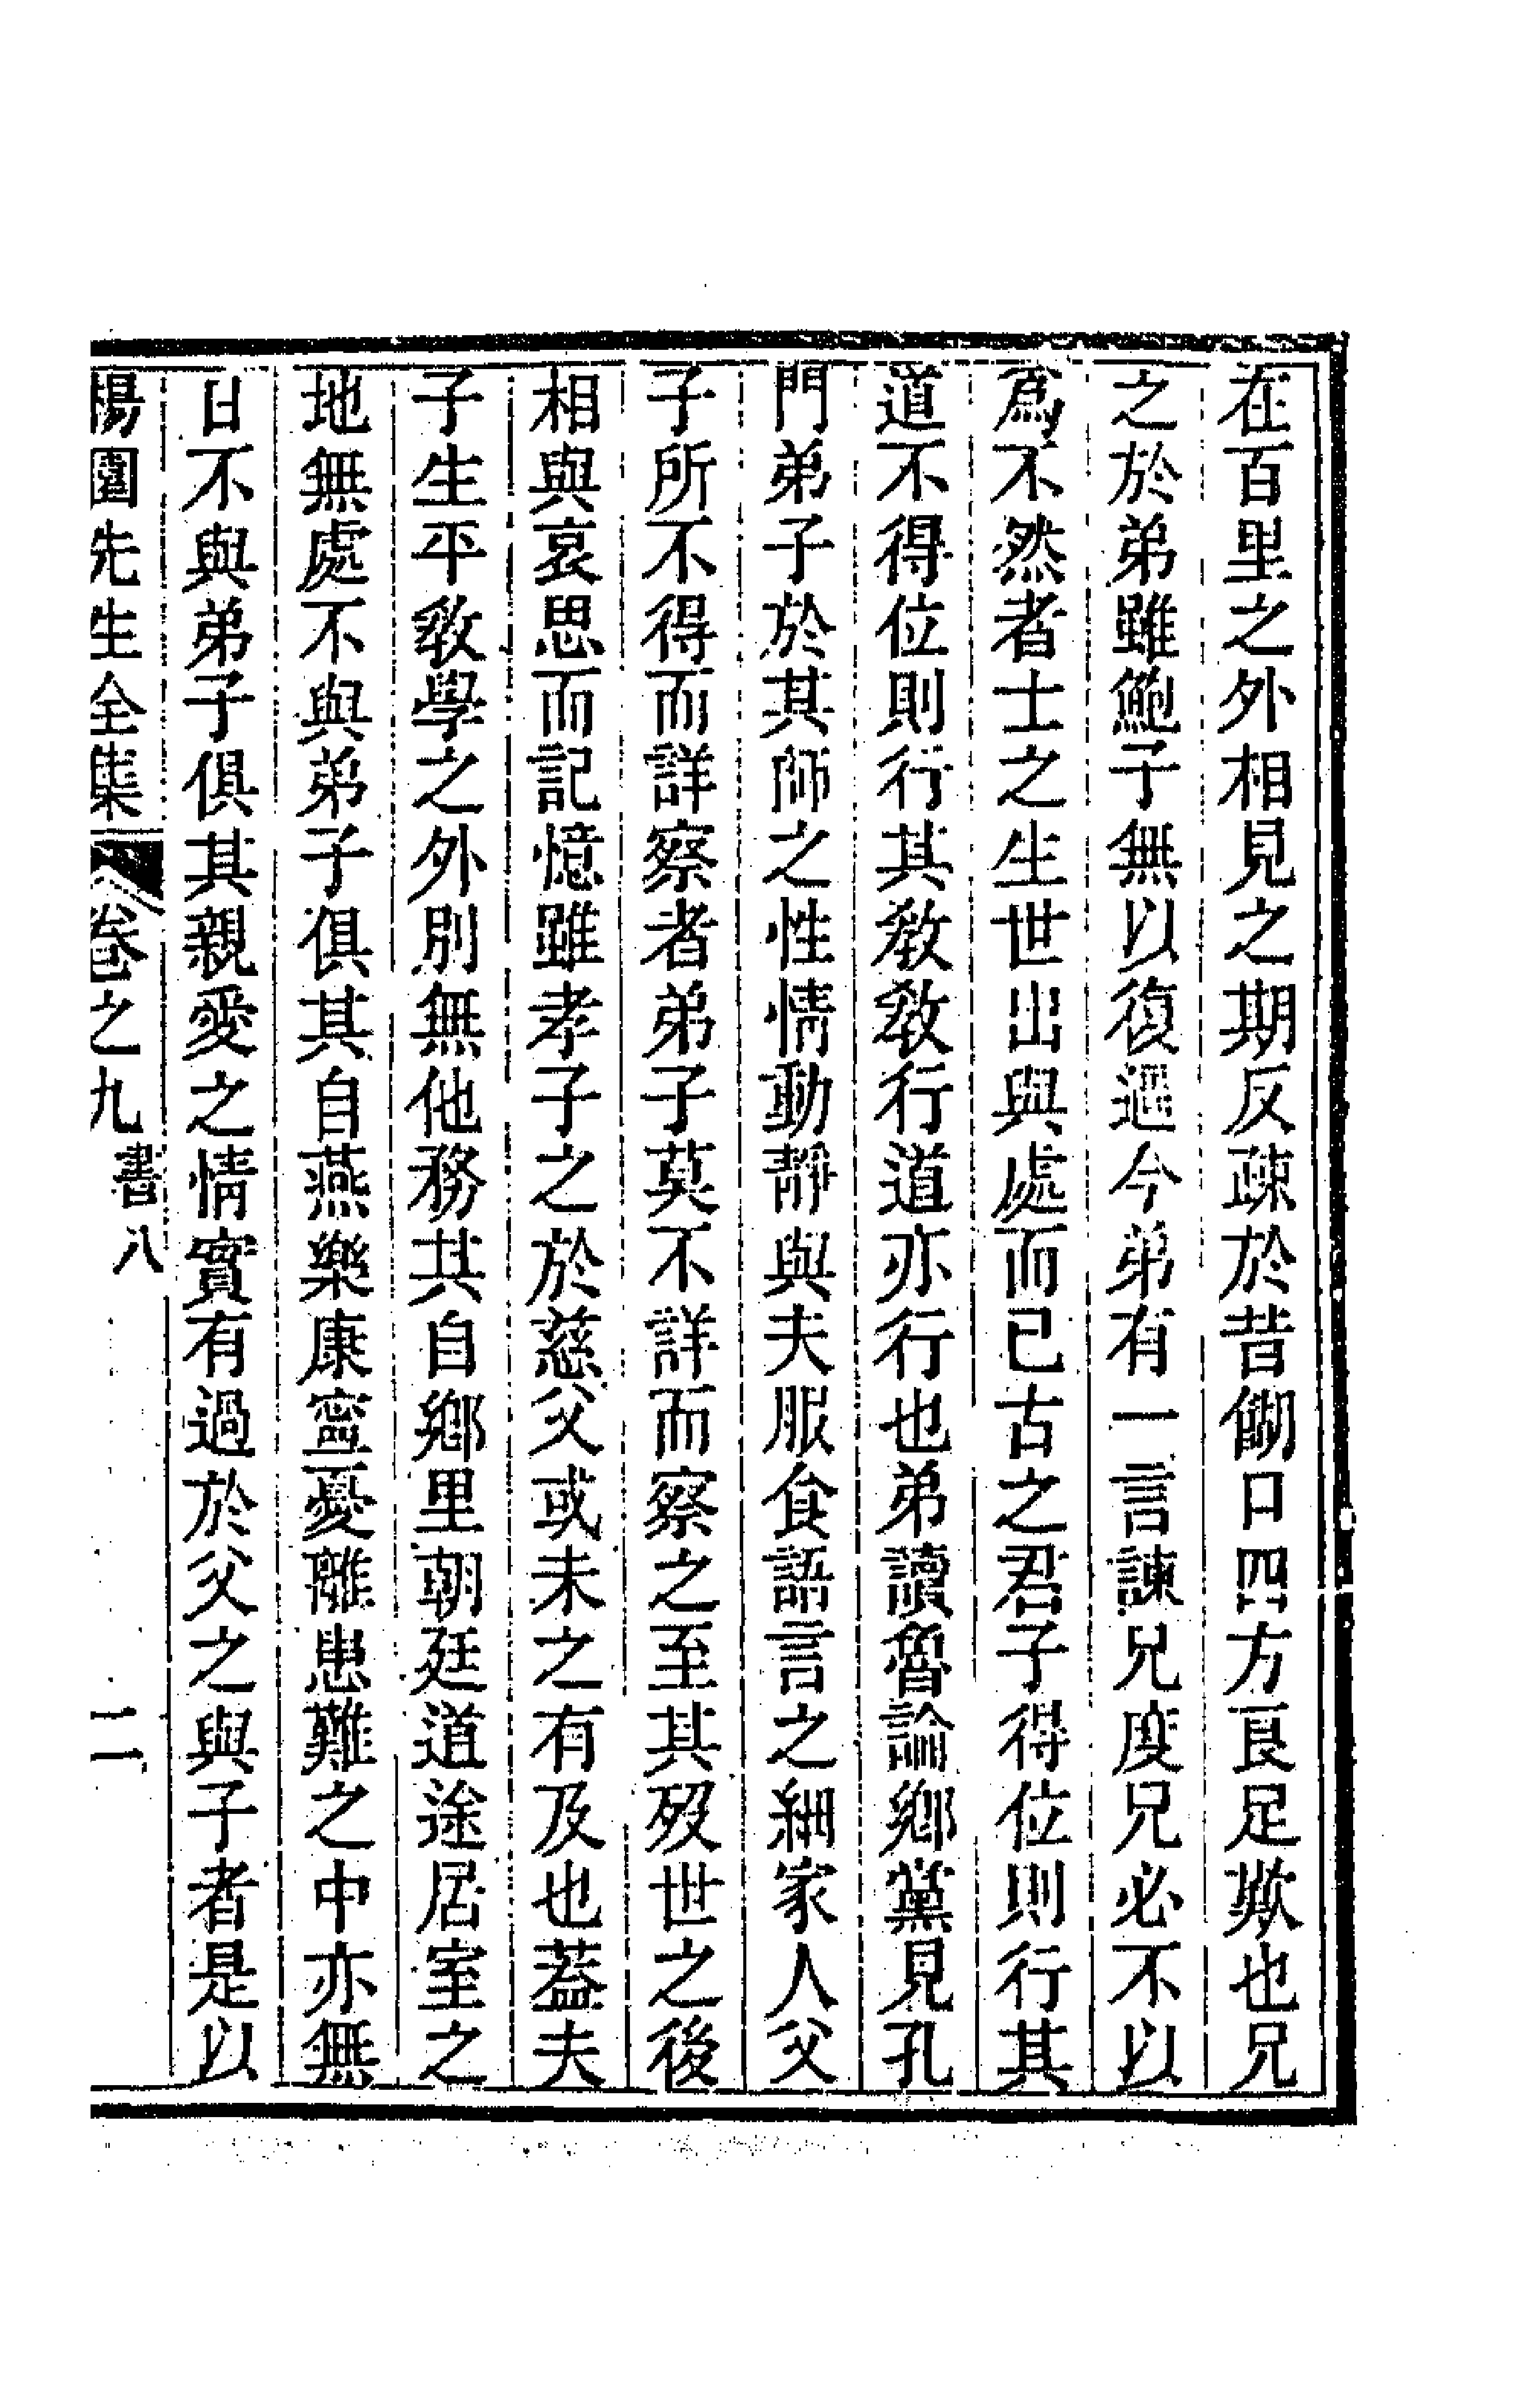 在百里之外相見之期反疎於昔餬口四方良足歎也兄
之於弟雖鮑子無以復過今弟有一言諫兄度兄必不以
爲不然者士之生世出與處而已古之君子得位則行其
道不得位則行其敎敎行道亦行也弟讀魯論鄉黨見孔
門弟子於其師之性情動靜與夫服食語言之細家人父
子所不得而詳察者弟子莫不詳而察之至其歿世之後
相與哀思而記憶雖孝子之於慈父或未之有及也葢夫
子生平敎學之外別無他務其自鄉里朝廷道途居室之
地無處不與弟子俱其自燕樂康寧憂離患難之中亦無
日不與弟子俱其親愛之情實有過於父之與子者是以
楊園先生全集 卷之九 書八 二